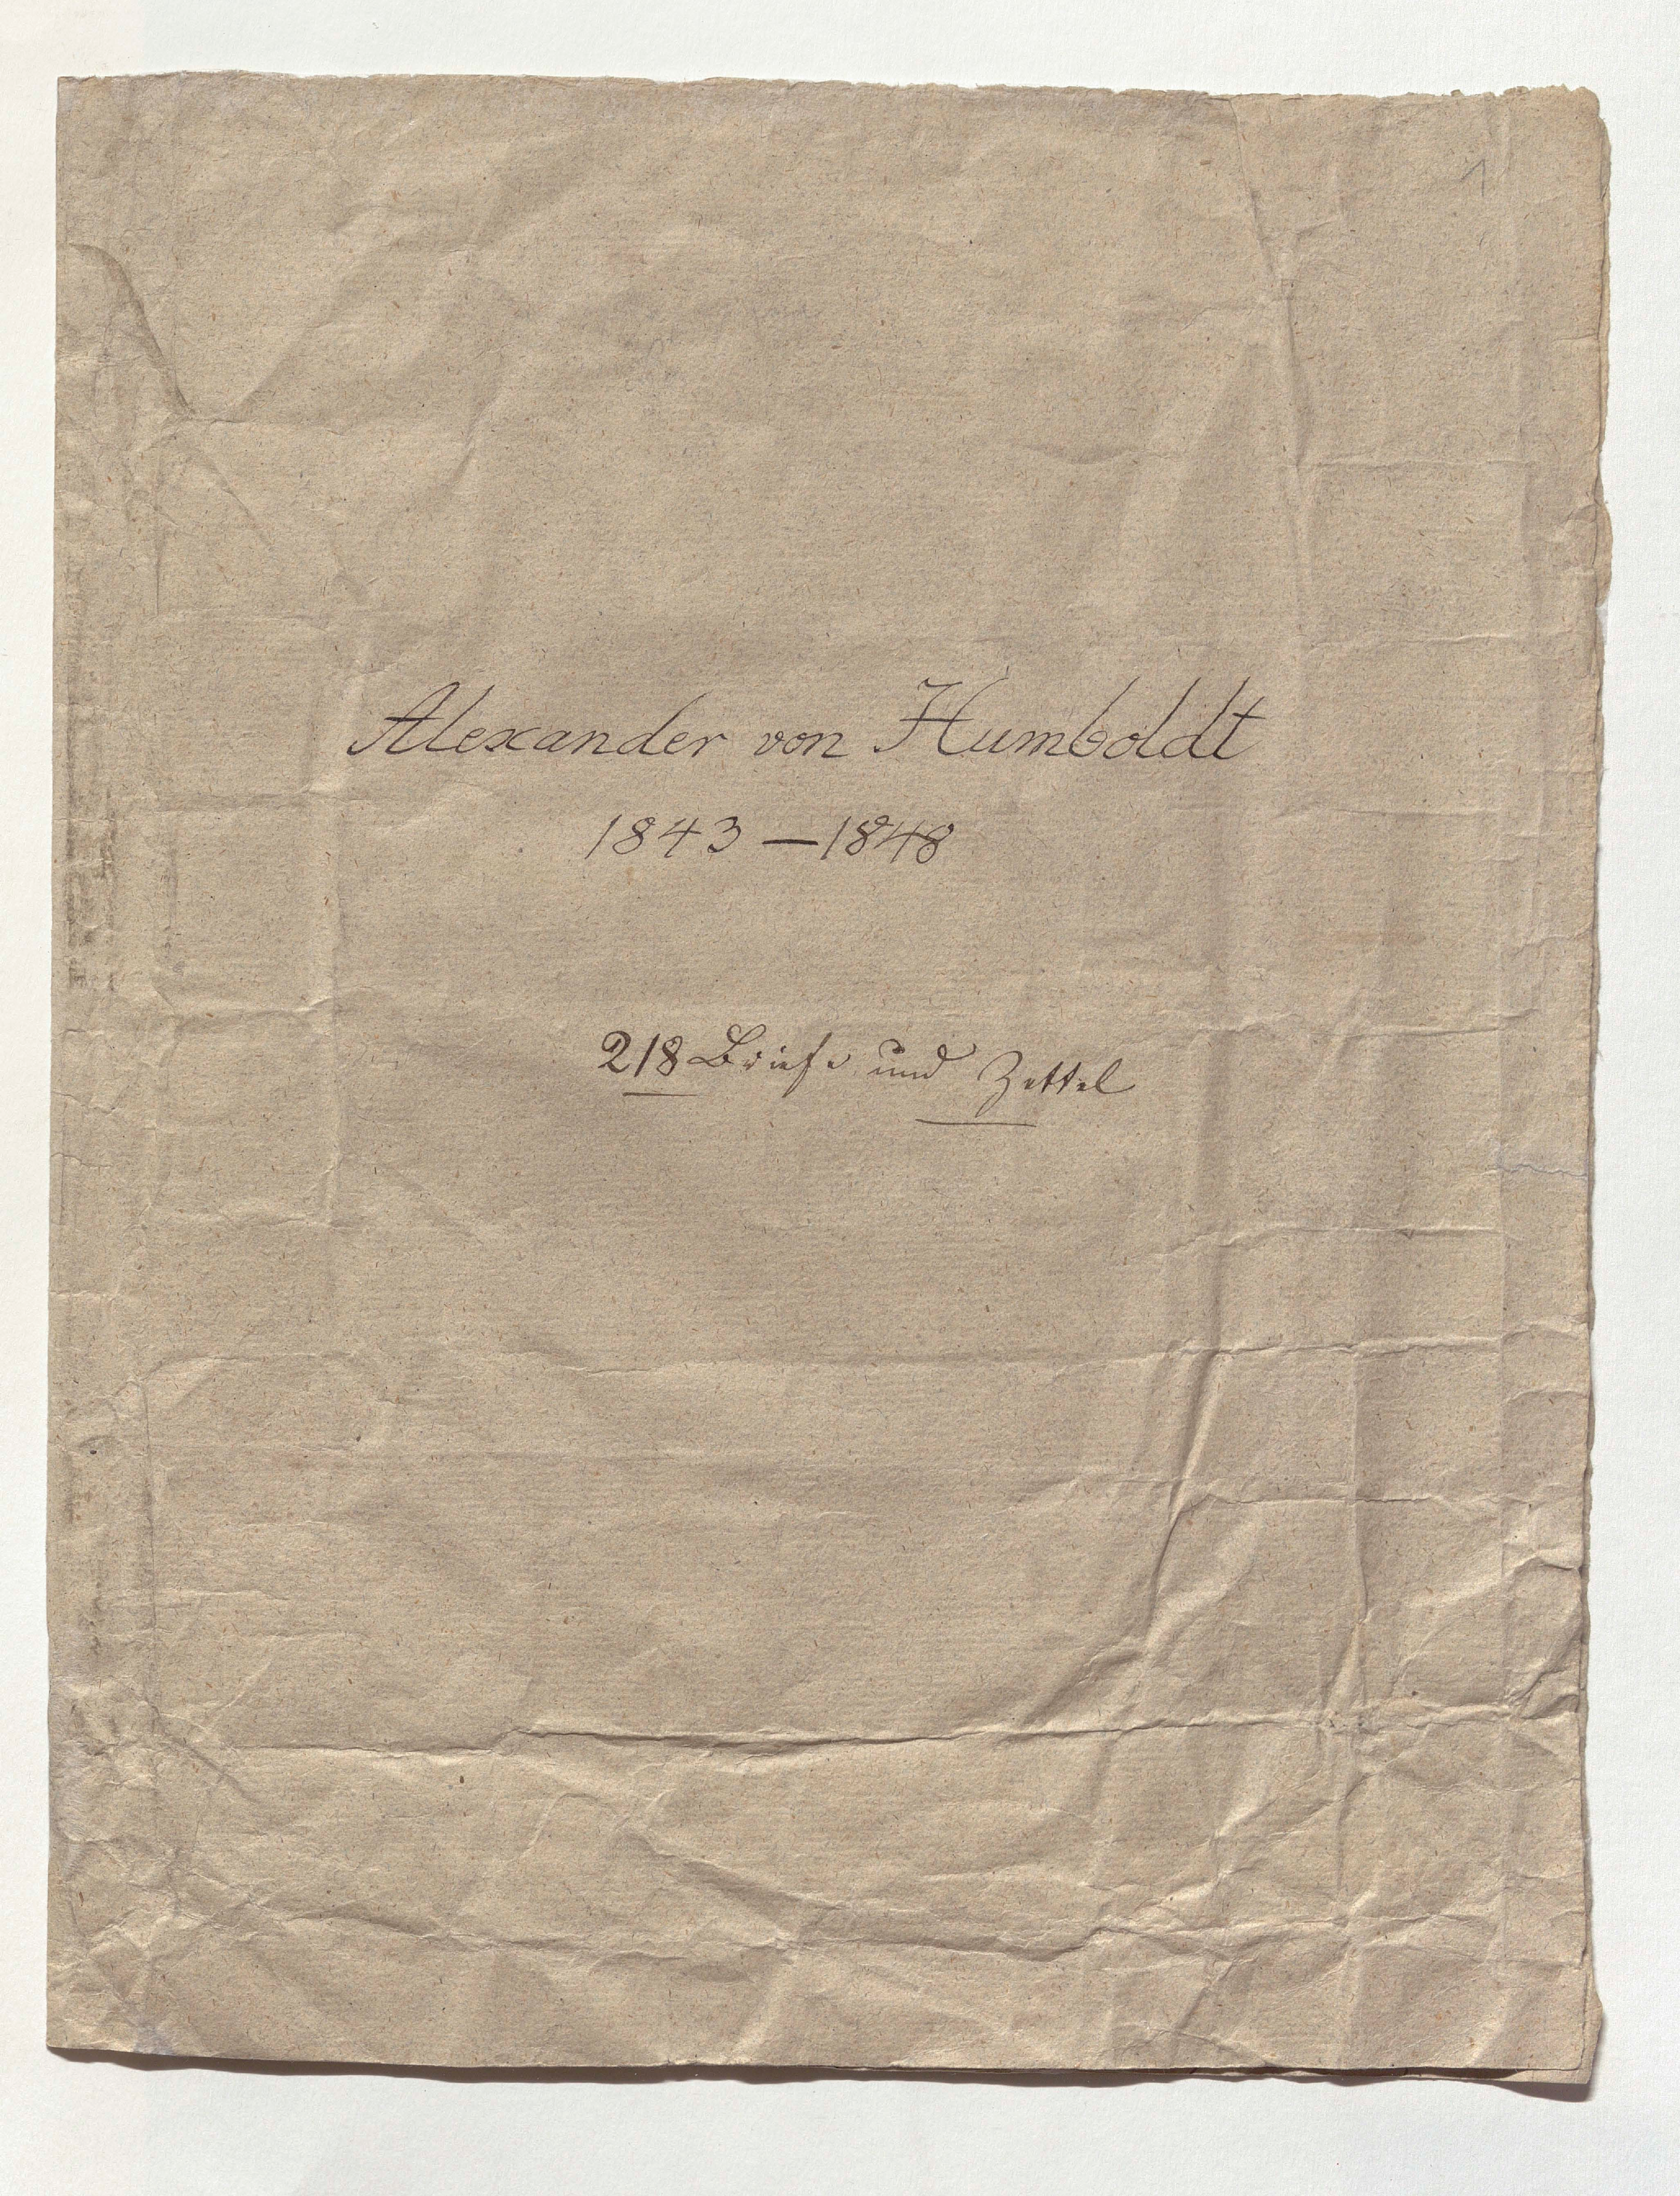 1
Alexander von Humboldt
1843 — 1848
218 Briefe und Zettel